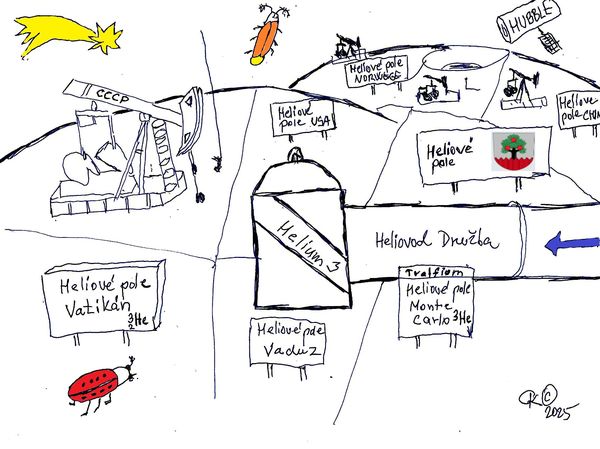 HUBBLE
Heliové pole
NORWEGE
CCCP
Heliové
pole USA
Heliove
pole CHINA
Heliové
pole
Helium 3
Heliovod Družba
Tralfium
Heliové pole
Monte
Carlo ³He
Heliové pole
Vatikán
³₂He
Heliové pole
Vaduz
©
2025